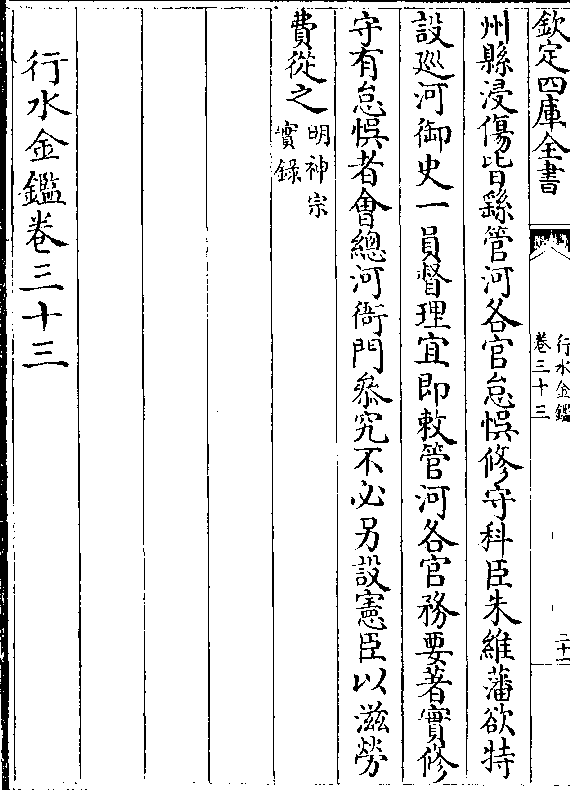 欽定四庫全書
行水金鑑
卷三十三
二十一
州縣浸傷皆繇管河各官怠悞修守科臣朱維藩欲特
設廵河御史一員督理宜即敕管河各官務要著實修
守有怠悞者會總河衙門叅究不必另設憲臣以滋勞
費從之明神宗
實錄
行水金鑑卷三十三